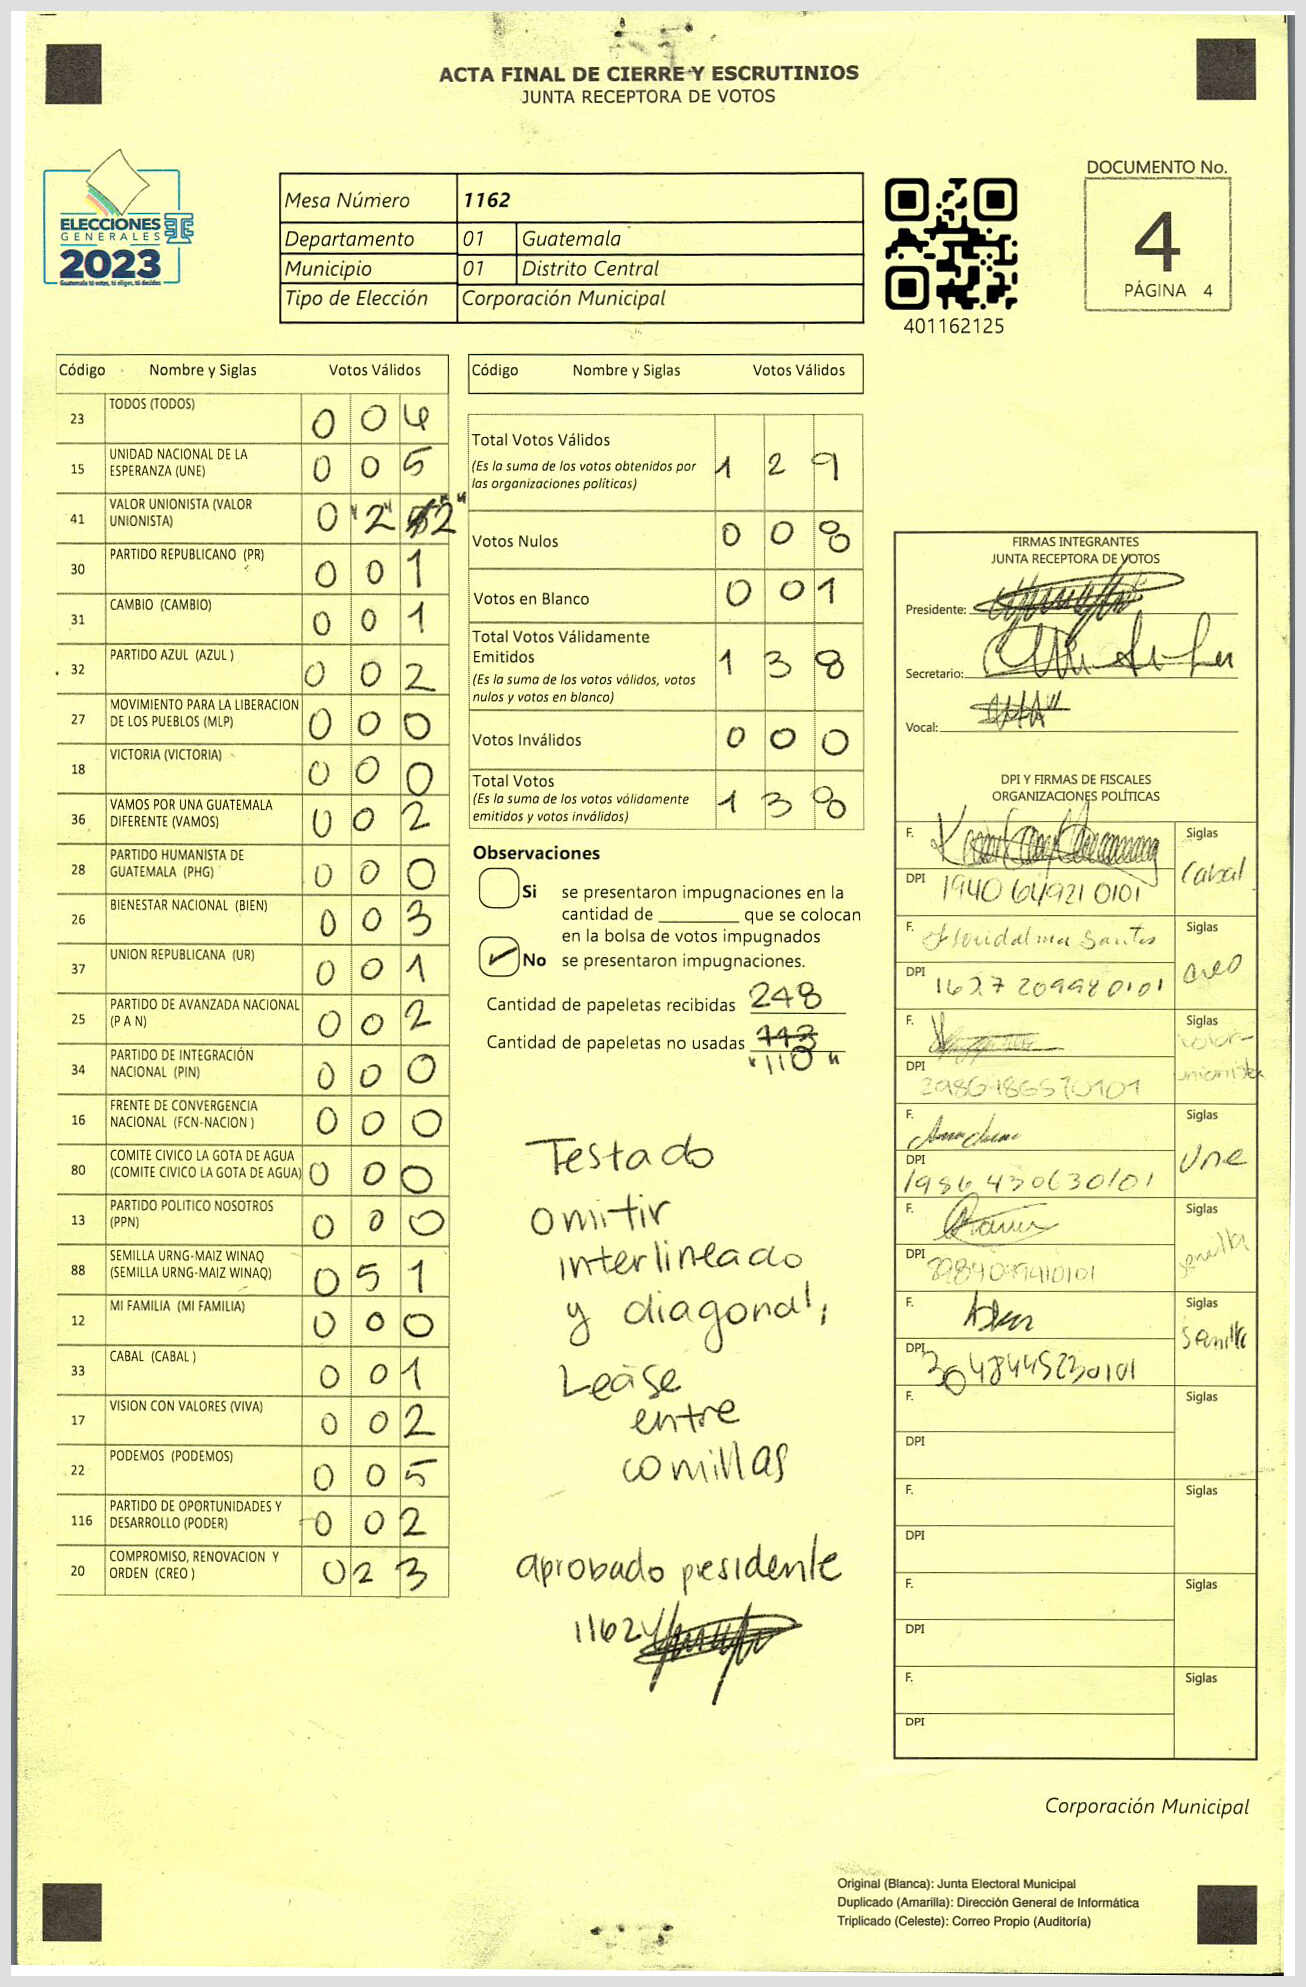 ACTA FINAL DE CIERRE Y ESCRUTINIOS
JUNTA RECEPTORA DE VOTOS
ELECCIONES
GENERALES
2023
Guatemala tú votas, tú eliges, tú decides
Mesa Número 1162
Departamento 01 Guatemala
Municipio 01 Distrito Central
Tipo de Elección Corporación Municipal
401162125
DOCUMENTO No.
4
PÁGINA 4
Código Nombre y Siglas Votos Válidos
23 TODOS (TODOS) 0 0 4
15 UNIDAD NACIONAL DE LA ESPERANZA (UNE) 0 0 5
41 VALOR UNIONISTA (VALOR UNIONISTA) 0 "2" "2"
30 PARTIDO REPUBLICANO (PR) 0 0 1
31 CAMBIO (CAMBIO) 0 0 1
32 PARTIDO AZUL (AZUL ) 0 0 2
27 MOVIMIENTO PARA LA LIBERACION DE LOS PUEBLOS (MLP) 0 0 0
18 VICTORIA (VICTORIA) 0 0 0
36 VAMOS POR UNA GUATEMALA DIFERENTE (VAMOS) 0 0 2
28 PARTIDO HUMANISTA DE GUATEMALA (PHG) 0 0 0
26 BIENESTAR NACIONAL (BIEN) 0 0 3
37 UNION REPUBLICANA (UR) 0 0 1
25 PARTIDO DE AVANZADA NACIONAL (P A N) 0 0 2
34 PARTIDO DE INTEGRACIÓN NACIONAL (PIN) 0 0 0
16 FRENTE DE CONVERGENCIA NACIONAL (FCN-NACION ) 0 0 0
80 COMITE CIVICO LA GOTA DE AGUA (COMITE CIVICO LA GOTA DE AGUA) 0 0 0
13 PARTIDO POLITICO NOSOTROS (PPN) 0 0 0
88 SEMILLA URNG-MAIZ WINAQ (SEMILLA URNG-MAIZ WINAQ) 0 5 1
12 MI FAMILIA (MI FAMILIA) 0 0 0
33 CABAL (CABAL ) 0 0 1
17 VISION CON VALORES (VIVA) 0 0 2
22 PODEMOS (PODEMOS) 0 0 5
116 PARTIDO DE OPORTUNIDADES Y DESARROLLO (PODER) 0 0 2
20 COMPROMISO, RENOVACION Y ORDEN (CREO ) 0 2 3
Código Nombre y Siglas Votos Válidos
Total Votos Válidos 1 2 9
(Es la suma de los votos obtenidos por
las organizaciones políticas)
Votos Nulos 0 0 8
Votos en Blanco 0 0 1
Total Votos Válidamente
Emitidos 1 3 8
(Es la suma de los votos válidos, votos
nulos y votos en blanco)
Votos Inválidos 0 0 0
Total Votos 1 3 8
(Es la suma de los votos válidamente
emitidos y votos inválidos)
Observaciones
Si se presentaron impugnaciones en la
cantidad de ________ que se colocan
en la bolsa de votos impugnados
No se presentaron impugnaciones.
Cantidad de papeletas recibidas 248
Cantidad de papeletas no usadas 113
"110"
Testado
omitir
interlineado
y diagonal,
Lease
entre
comillas
aprobado presidente
1162
FIRMAS INTEGRANTES
JUNTA RECEPTORA DE VOTOS
Presidente:
Secretario:
Vocal:
DPI Y FIRMAS DE FISCALES
ORGANIZACIONES POLÍTICAS
F. Siglas Cabal
DPI 1940 64921 0101
F. Floridalma Santos Siglas creo
DPI 1627 20998 0101
F. Siglas Valor unionista
DPI
F. Siglas Une
DPI 1986 430630101
F. Siglas semilla
DPI
F. Siglas Semilla
DPI 3048445230101
F. Siglas
DPI
F. Siglas
DPI
F. Siglas
DPI
F. Siglas
DPI
Corporación Municipal
Original (Blanca): Junta Electoral Municipal
Duplicado (Amarilla): Dirección General de Informática
Triplicado (Celeste): Correo Propio (Auditoría)